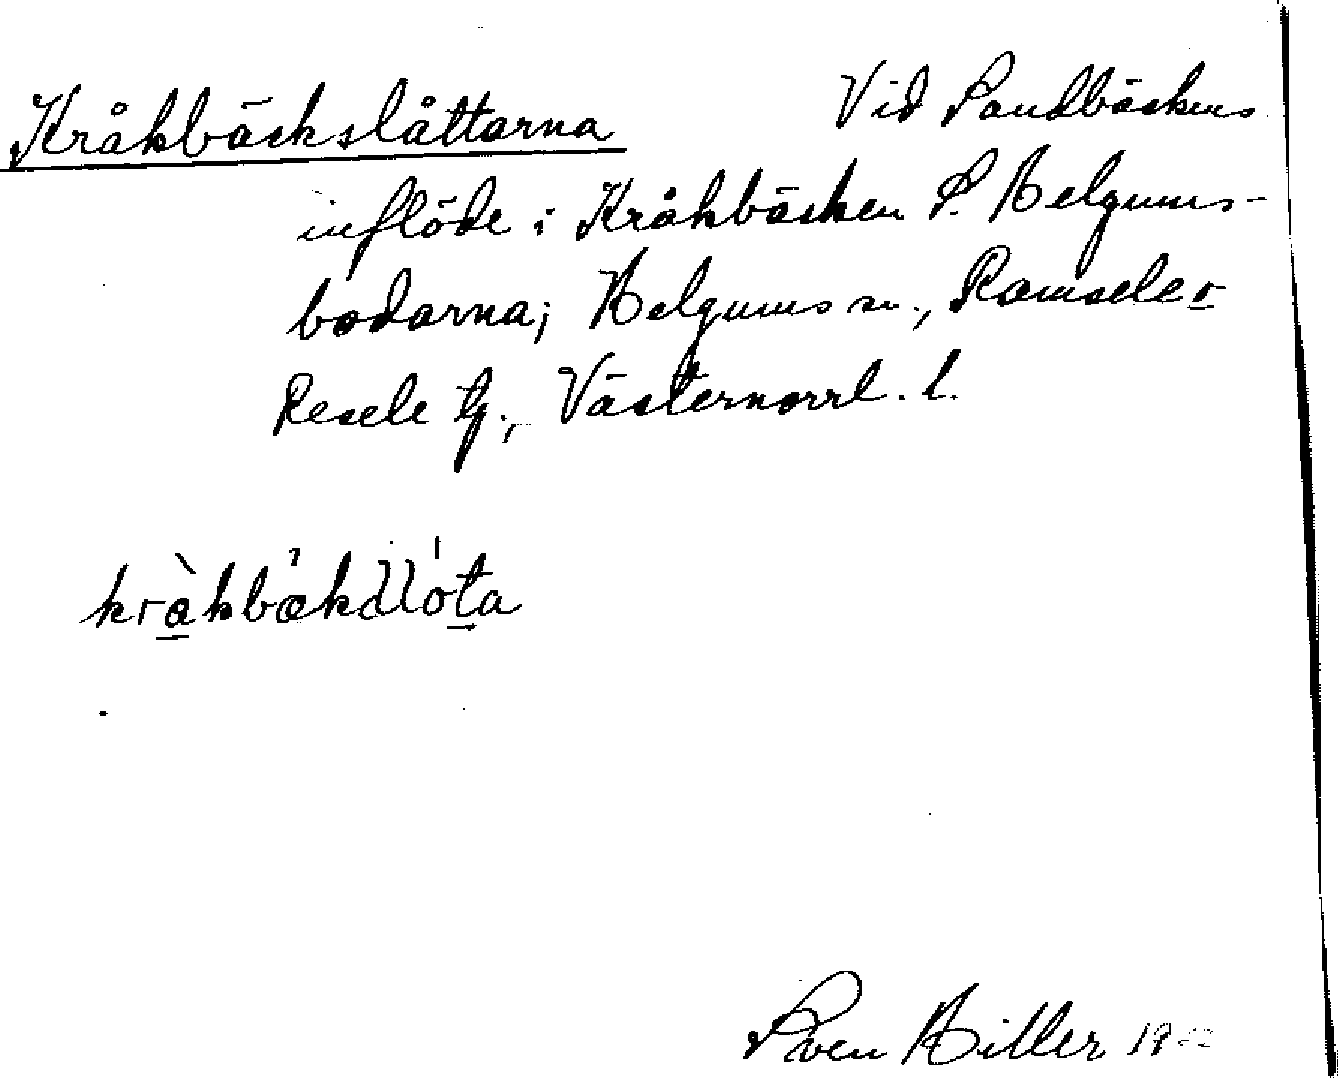 Kråkbäckslåttarna Vid Sandbäckens
inflöde i Kråkbäcken S. Helgums-
bodarna; Helgums sn., Ramsele o
Resele tg., Västernorrl. l.
kràkbäksllòta
Sven Hiller